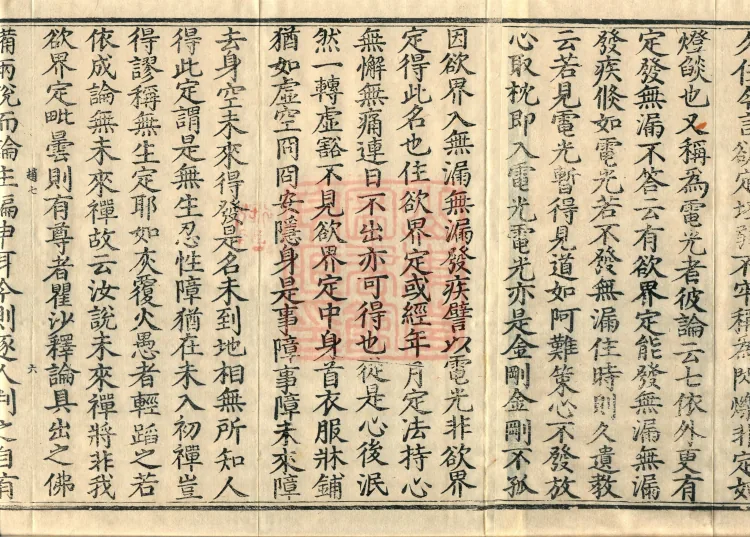 燈𦦨也又稱為電光者彼論云七依外更有
定發無漏不答云有欲界定能發無漏無漏
發疾倐如電光若不發無漏住時則久遺教
云若見電光暫得見道如阿難策心不發放
心取枕即入電光電光亦是金剛金剛不孤
因欲界入無漏無漏發疾譬以電光非欲界
定得此名也住欲界定或經年月定法持心
無懈無痛連日不出亦可得也從是心後泯
然一轉虛豁不見欲界定中身首衣服牀鋪
猶如虛空冏冏安隱身是事障事障未來障
去身空未來得發是名未到地相無所知人
得此定謂是無生忍性障猶在未入初禪豈
得謬稱無生定耶如灰覆火愚者輕蹈之若
依成論無未來禪故云汝說未來禪將非我
欲界定毗曇則有尊者瞿沙釋論具出之佛
趙七
六